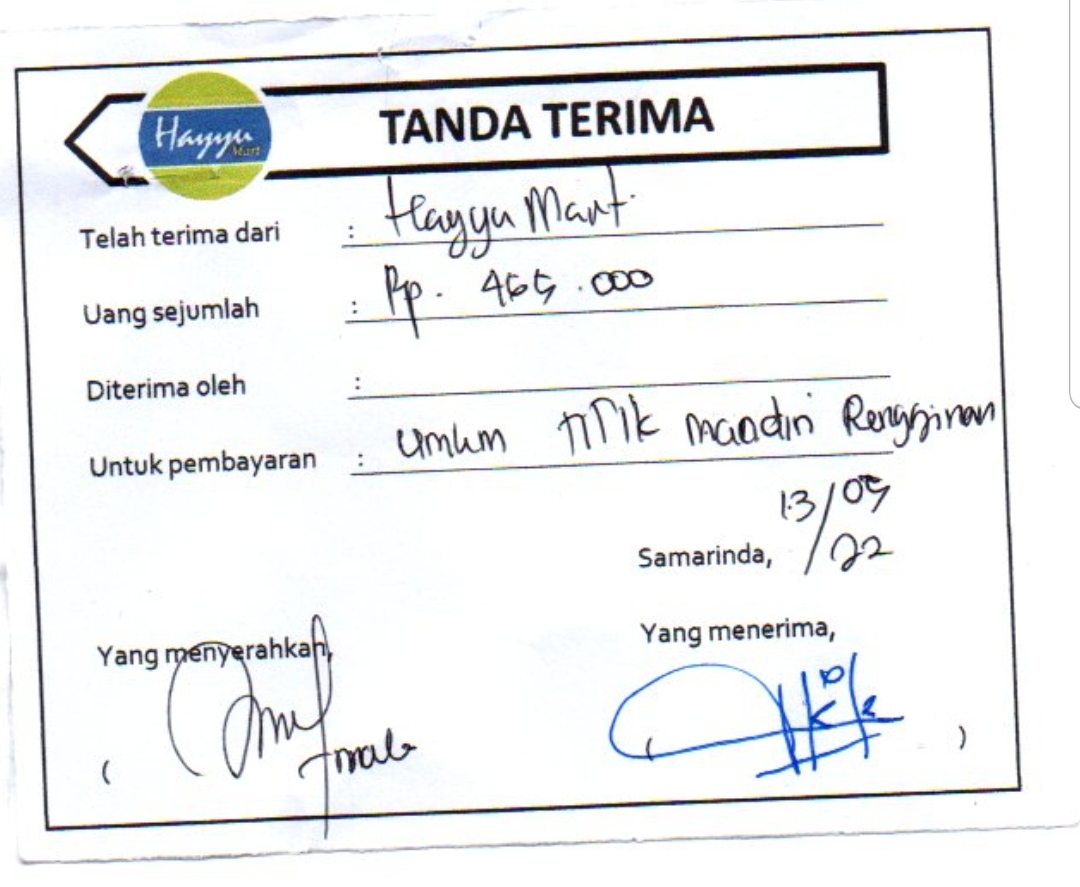 Hayyu
Mart
TANDA TERIMA
Telah terima dari : Hayyu Mart
Uang sejumlah : Rp. 465.000
Diterima oleh :
Untuk pembayaran : umkm mandiri Rengginan
13/05
Samarinda, /22
Yang menyerahkan,
Yang menerima,
( 
( )